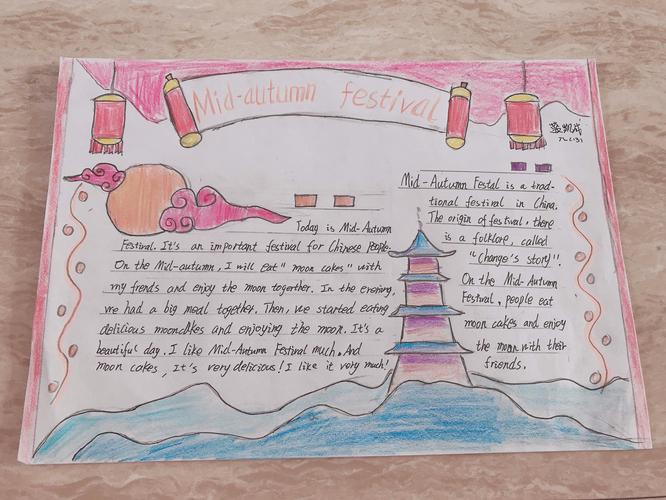 Mid-autumn festival
Today is Mid-Autumn
Festival. It's an important festival for Chinese people.
On the Mid-autumn, I will eat "moon cakes" with
my frends and enjoy the moon togerther. In the evening,
we had a big meal together. Then, we started eating
delicious mooncakes and enjoying the moon. It's a
beautiful day. I like Mid-Autumn Festival much. And
moon cakes, It's very delicious! I like it very much!
Mid-Autumn Festal is a trad-
tional festival in China.
The origin of festival, there
is a folklore, called
"Change's story".
On the Mid-Autumn
Festival, people eat
moon cakes and enjoy
the moon with their
friends.